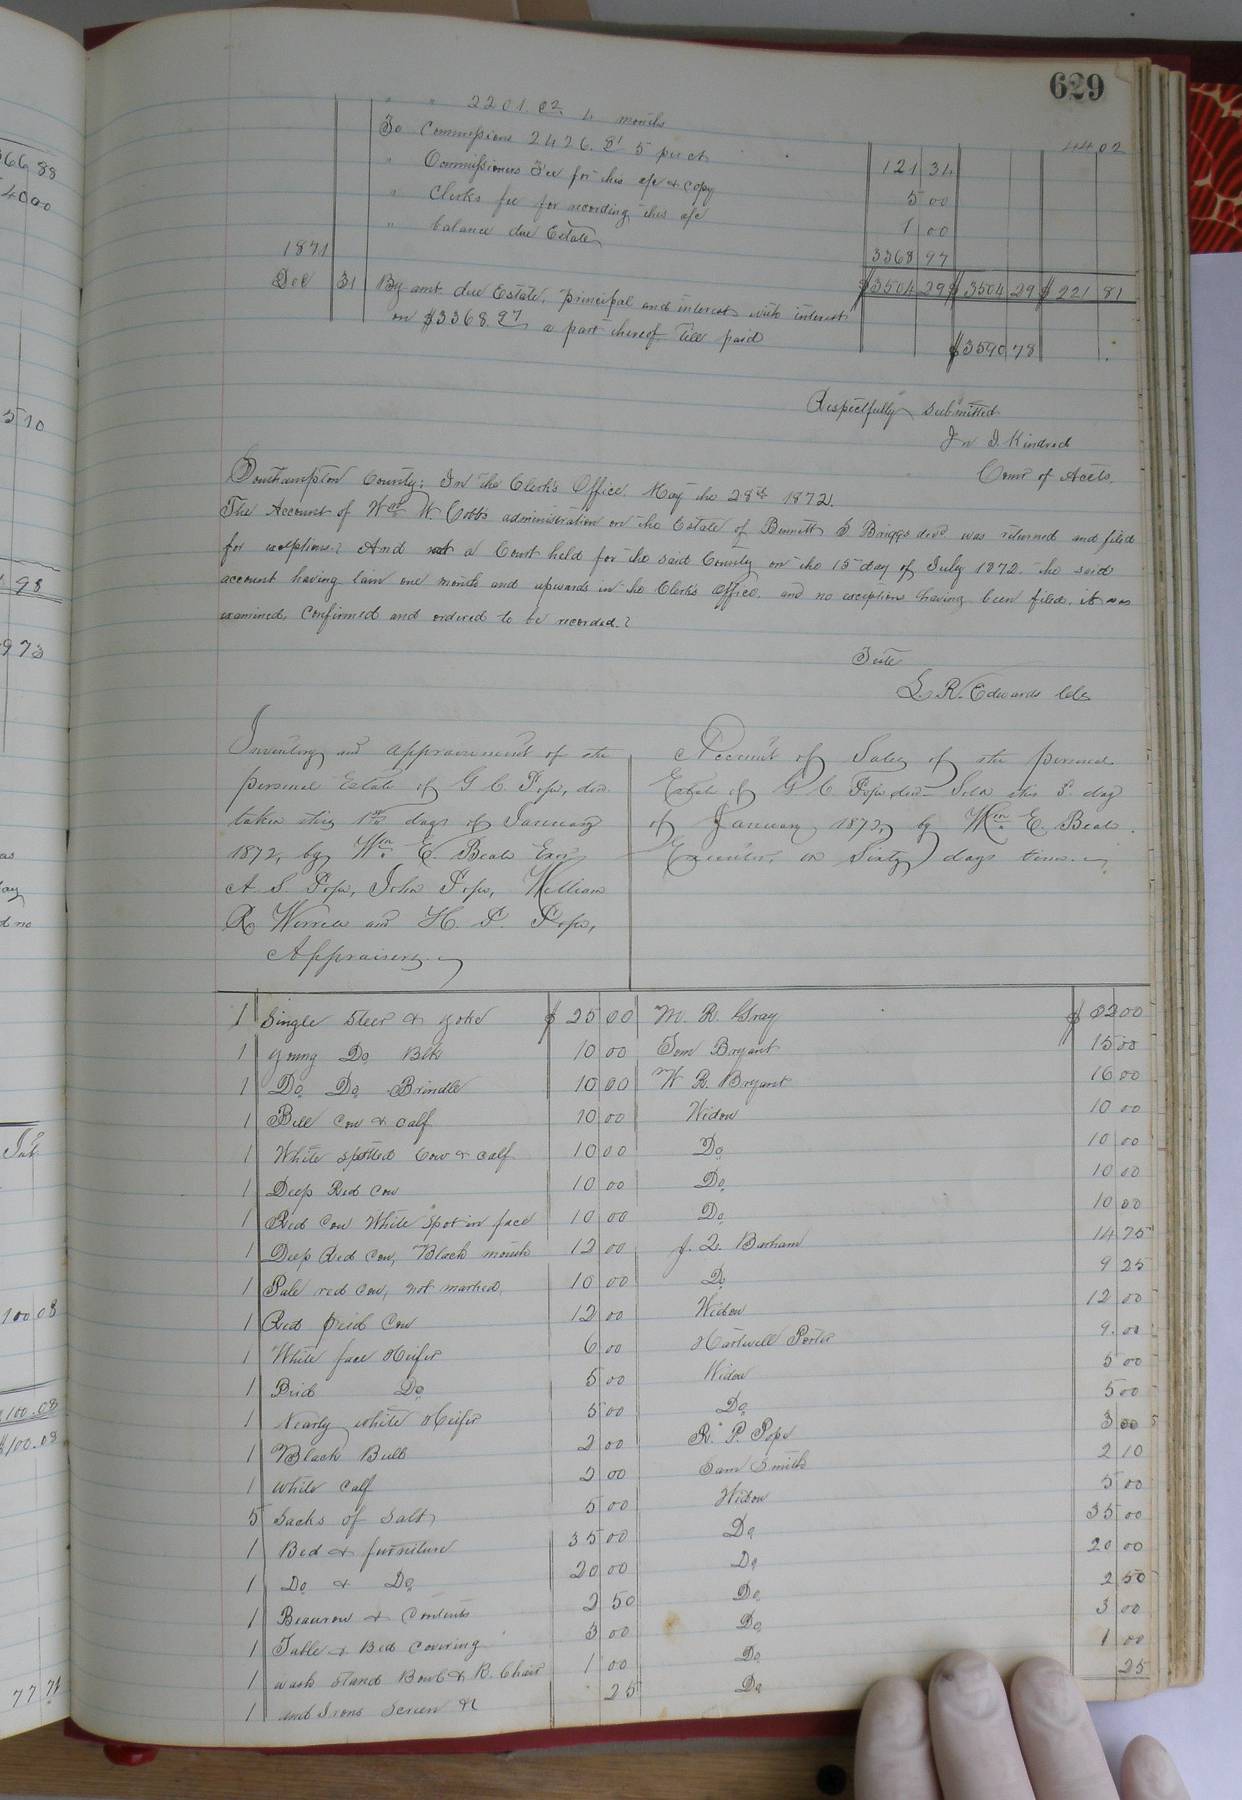 629
" " 2201.02 4 months 44 02
To Commissions 2426.81 5 per ct 121 34
" Commissioners Fee for this a/c & copy 5 00
" Clerks fee for recording this a/c 1 00
" balance due Estate 3368 97
$3504 29 $3504 29 $221 81
1871
Dec 31 By amt. due Estate, principal and interest with interest
on $3368.97 a part thereof till paid $3590 78
Respectfully submitted
Jn J. Kindred
Comr of Accts.
Southampton County: In the Clerk's Office. May the 28th 1872.
The Account of W W Cobb's administration on the Estate of Bennett Briggs decd was returned and filed
for exceptions. And at a Court held for the said County on the 15 day of July 1872. the said
account having lain one month and upwards in the Clerk's Office. and no exceptions having been filed, it was
examined, confirmed and ordered to be recorded.
Teste
L. R. Edwards Clk
Inventory and appraisement of the
personal Estate of G C. Pope, dec.
taken this 1st day of January
1872, by Wm. E. Beale Exor
A. S. Pope, John Pope, William
R Worrell and H. P. Pope,
Appraisers.
Account of Sales of the personal
Estate of G C. Pope, dec Sold this day
of January 1872, by Wm. E. Beale.
Executor, on Sixty days time.
1 Single Steer & yoke $25 00 M. R. Gray $32 00
1 young Do Blk 10 00 Tom Bryant 15 00
1 Do Do Brindle 10 00 W R. Bryant 16 00
1 Bell Cow & calf 10 00 Widow 10 00
1 White spotted Cow & calf 10 00 Do 10 00
1 Deep Red Cow 10 00 Do 10 00
1 Red Cow White spot in face 10 00 Do 10 00
1 Deep Red Cow, Black mouth 12 00 J. Q. Barham 14 75
1 Pale red Cow, not marked, 10 00 Do 9 25
1 Red pied Cow 12 00 Widow 12 00
1 White face Heifer 6 00 Hartwell Porter 9.00
1 Pied Do 5 00 Widow 5 00
1 Nearly white Heifer 5 00 Do 5 00
1 Black Bull 2 00 R. P. Pope 3 00
1 White Calf 2 00 Sam Smith 2 10
5 Sacks of Salt 5 00 Widow 5 00
1 Bed & furniture 35 00 Do 35 00
1 Do & Do 20 00 Do 20 00
1 Beaurow & Contents 2 50 Do 2 50
1 Table & Bed Covering 3 00 Do 3 00
1 wash stand Bowl & R. Chair 1 00 Do 1 00
1 and Irons Screen &c 25 Do 25